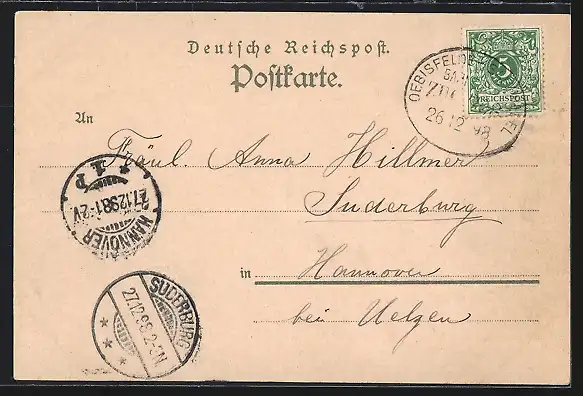 Deutsche Reichspost.
Postkarte.
5
REICHSPOST
OEBISFELDE
BAHN
ZUG
26 12 98
An
Fräul. Anna Hillmer
Suderburg
in Hannover
bei Uelzen
HANNOVER
27.12.98.1-2V.
* 1 p
SUDERBURG
27.12.98.2-3N.
* * *